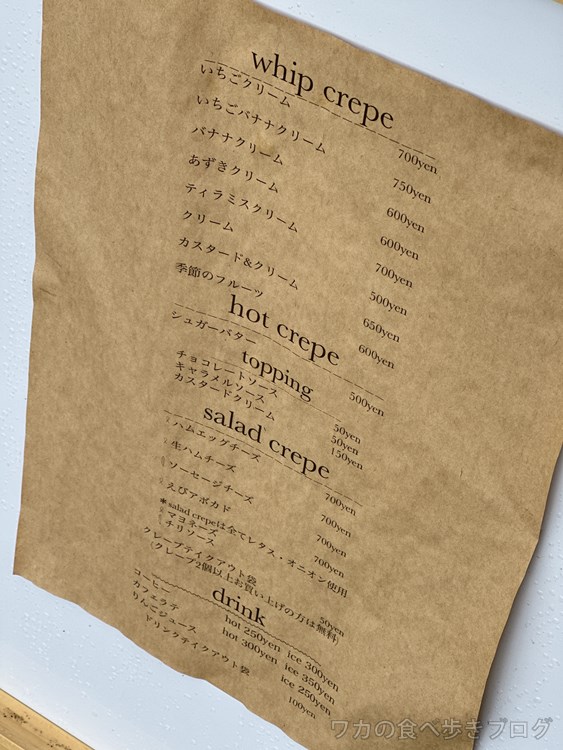 whip crepe
いちごクリーム 700yen
いちごバナナクリーム 750yen
バナナクリーム 600yen
あずきクリーム 600yen
ティラミスクリーム 700yen
クリーム 500yen
カスタード&クリーム 650yen
季節のフルーツ 600yen
hot crepe
シュガーバター 500yen
topping
チョコレートソース 50yen
キャラメルソース 50yen
カスタードクリーム 150yen
salad crepe
ハムエッグチーズ 700yen
生ハムチーズ 700yen
ソーセージチーズ 700yen
えびアボカド 700yen
*salad crepeは全てレタス・オニオン使用
マヨネーズ
チリソース
クレープテイクアウト袋 50yen
(クレープ2個以上お買い上げの方は無料)
drink
コーヒー hot 250yen ice 300yen
カフェラテ hot 300yen ice 350yen
りんごジュース ice 250yen
ドリンクテイクアウト袋 100yen
ワカの食べ歩きブログ